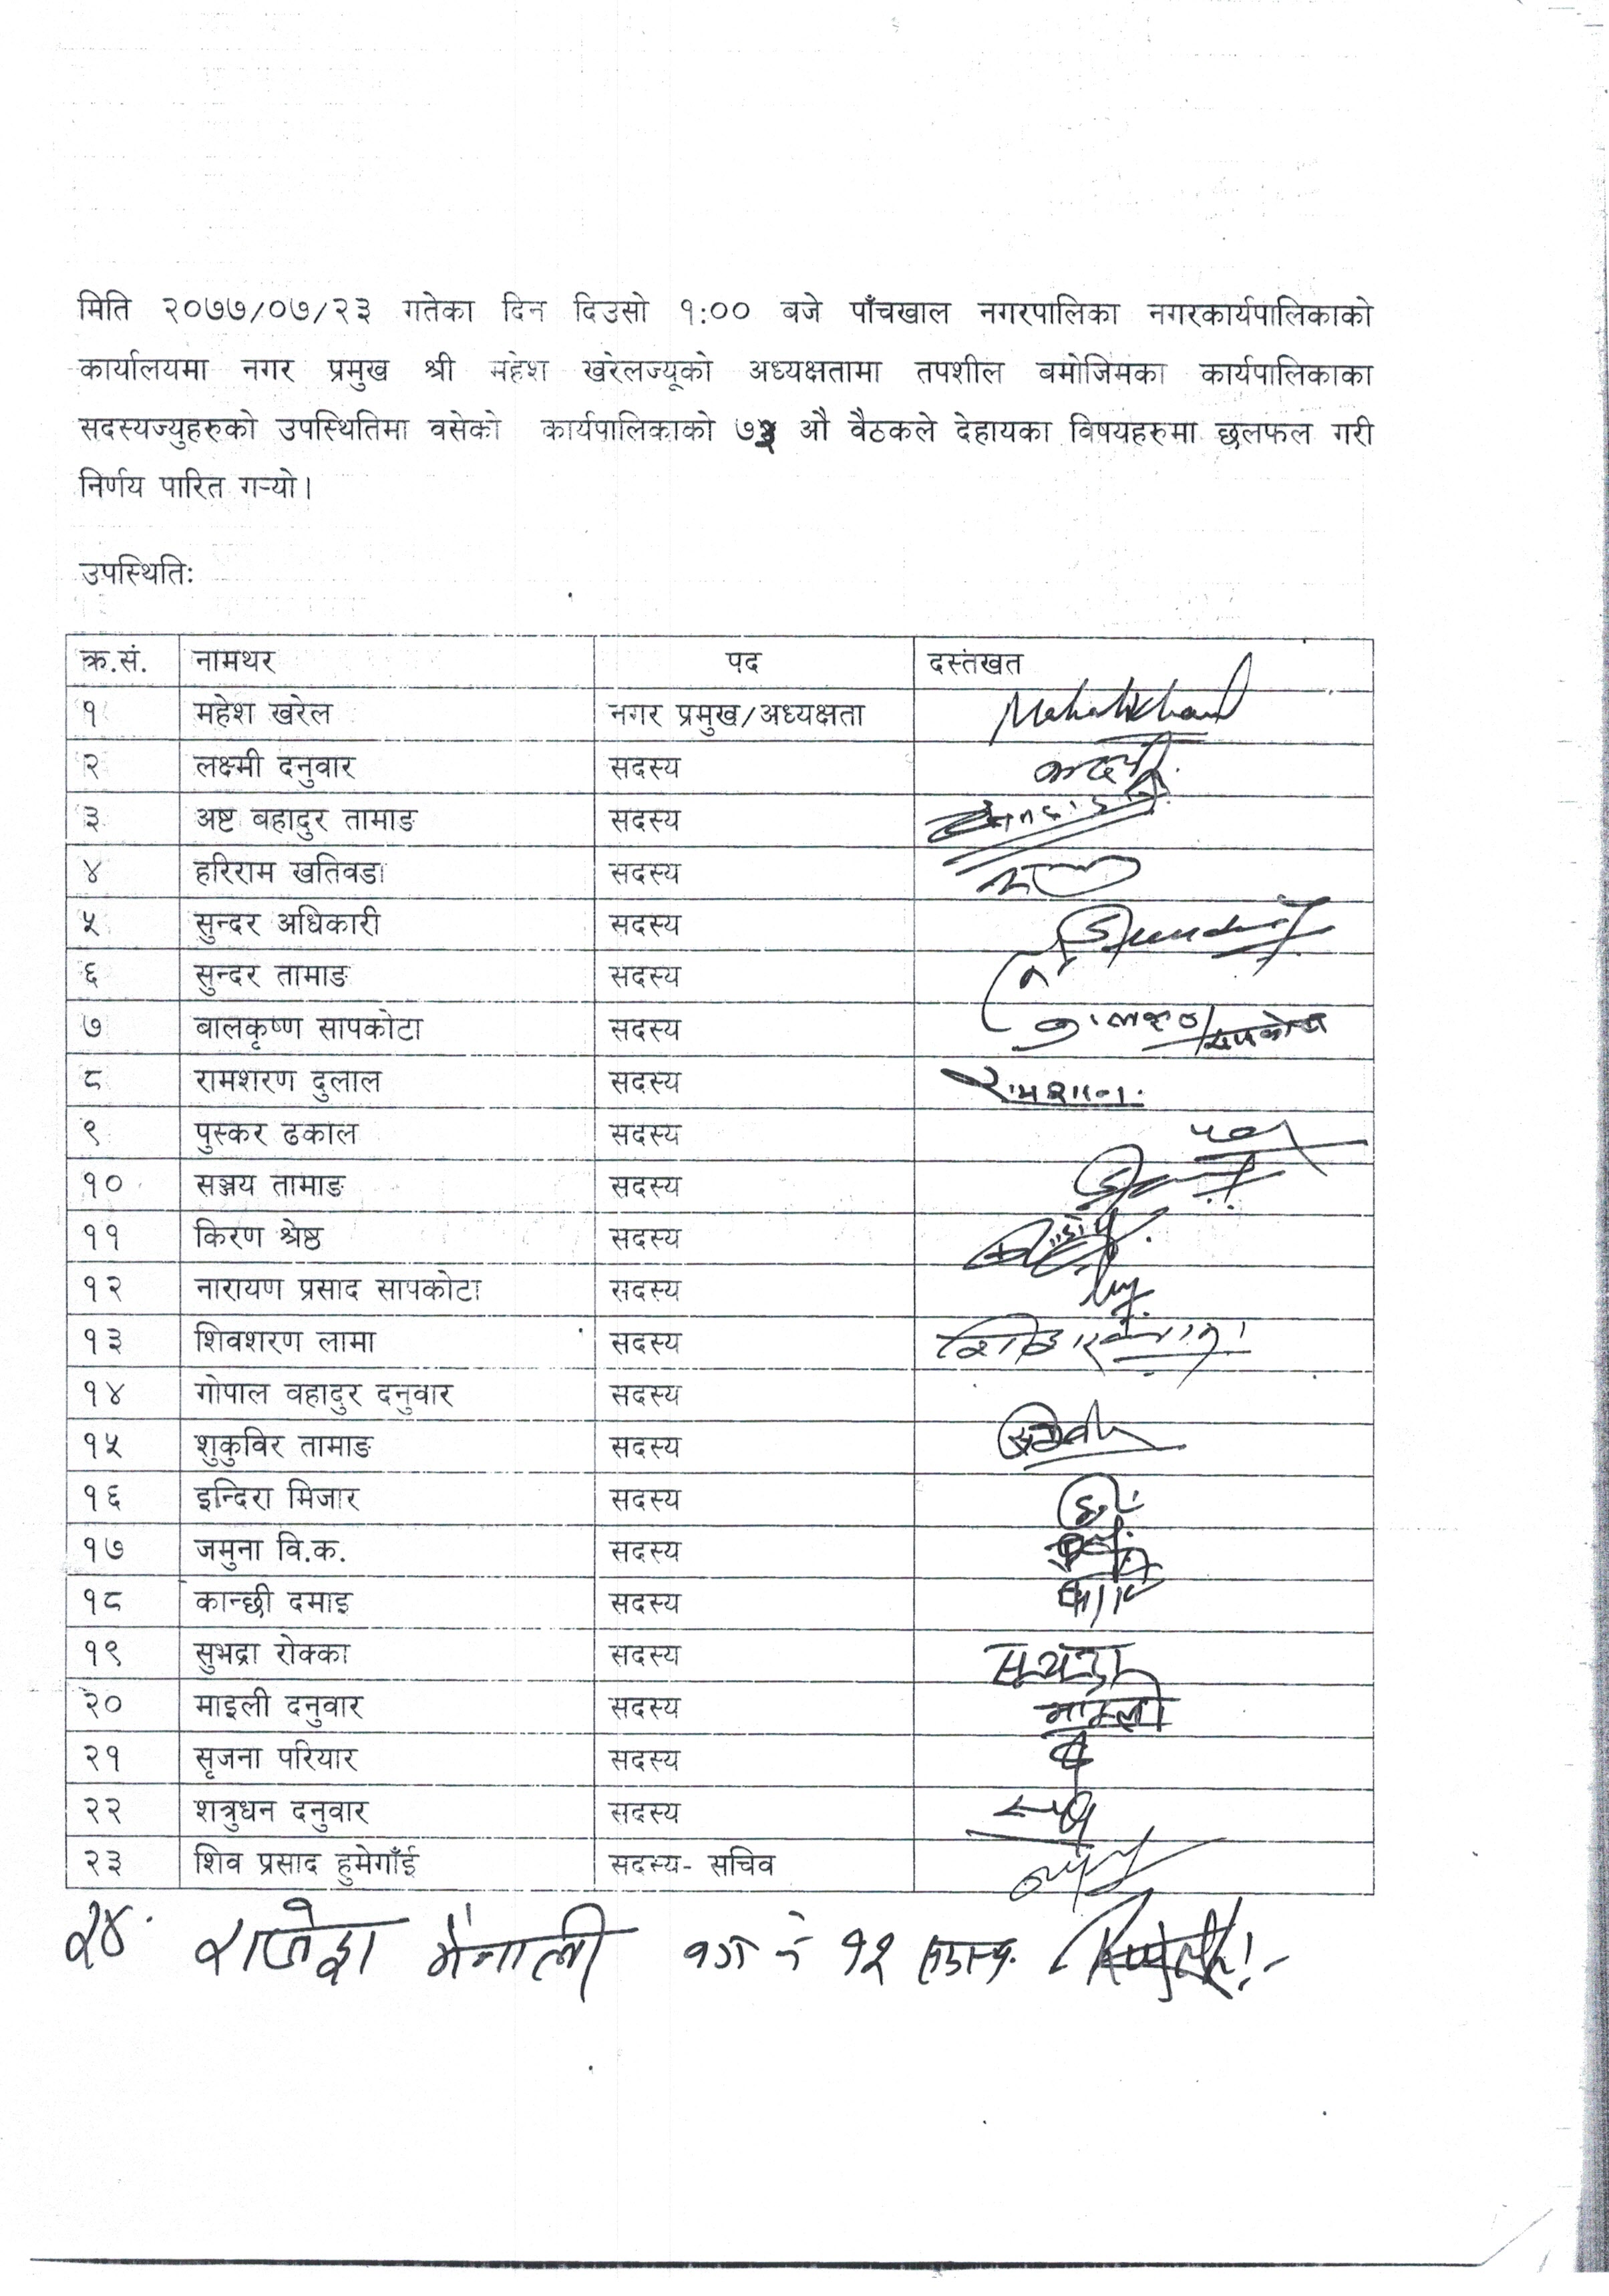 मिति २०७७/०७/२३ गतेका दिन दिउसो १:०० बजे पाँचखाल नगरपालिका नगरकार्यपालिकाको
कार्यालयमा नगर प्रमुख श्री महेश खरेलज्यूको अध्यक्षतामा तपशील बमोजिमका कार्यपालिकाका
सदस्यज्युहरुको उपस्थितिमा वसेको कार्यपालिकाको औ वैठकले देहायका विषयहरुमा छलफल गरी
निर्णय पारित गर्‍यो।
उपस्थितिः
क्र.सं. नामथर पद दस्तखत
१ महेश खरेल नगर प्रमुख/अध्यक्षता
२ लक्ष्मी दनुवार सदस्य
३ अष्ट बहादुर तामाङ सदस्य
४ हरिराम खतिवडा सदस्य
५ सुन्दर अधिकारी सदस्य
६ सुन्दर तामाङ सदस्य
७ बालकृष्ण सापकोटा सदस्य
८ रामशरण दुलाल सदस्य रामशरण
९ पुस्कर ढकाल सदस्य
१० सञ्जय तामाङ सदस्य
११ किरण श्रेष्ठ सदस्य
१२ नारायण प्रसाद सापकोटा सदस्य
१३ शिवशरण लामा सदस्य
१४ गोपाल वहादुर दनुवार सदस्य
१५ शुकुविर तामाङ सदस्य
१६ इन्दिरा मिजार सदस्य
१७ जमुना वि.क. सदस्य
१८ कान्छी दमाइ सदस्य
१९ सुभद्रा रोक्का सदस्य सुभद्रा
२० माइली दनुवार सदस्य माइली
२१ सृजना परियार सदस्य
२२ शत्रुधन दनुवार सदस्य
२३ शिव प्रसाद हुमेगाँई सदस्य- सचिव
२४. राजेश मैनाली वडा नं १२ सदस्य